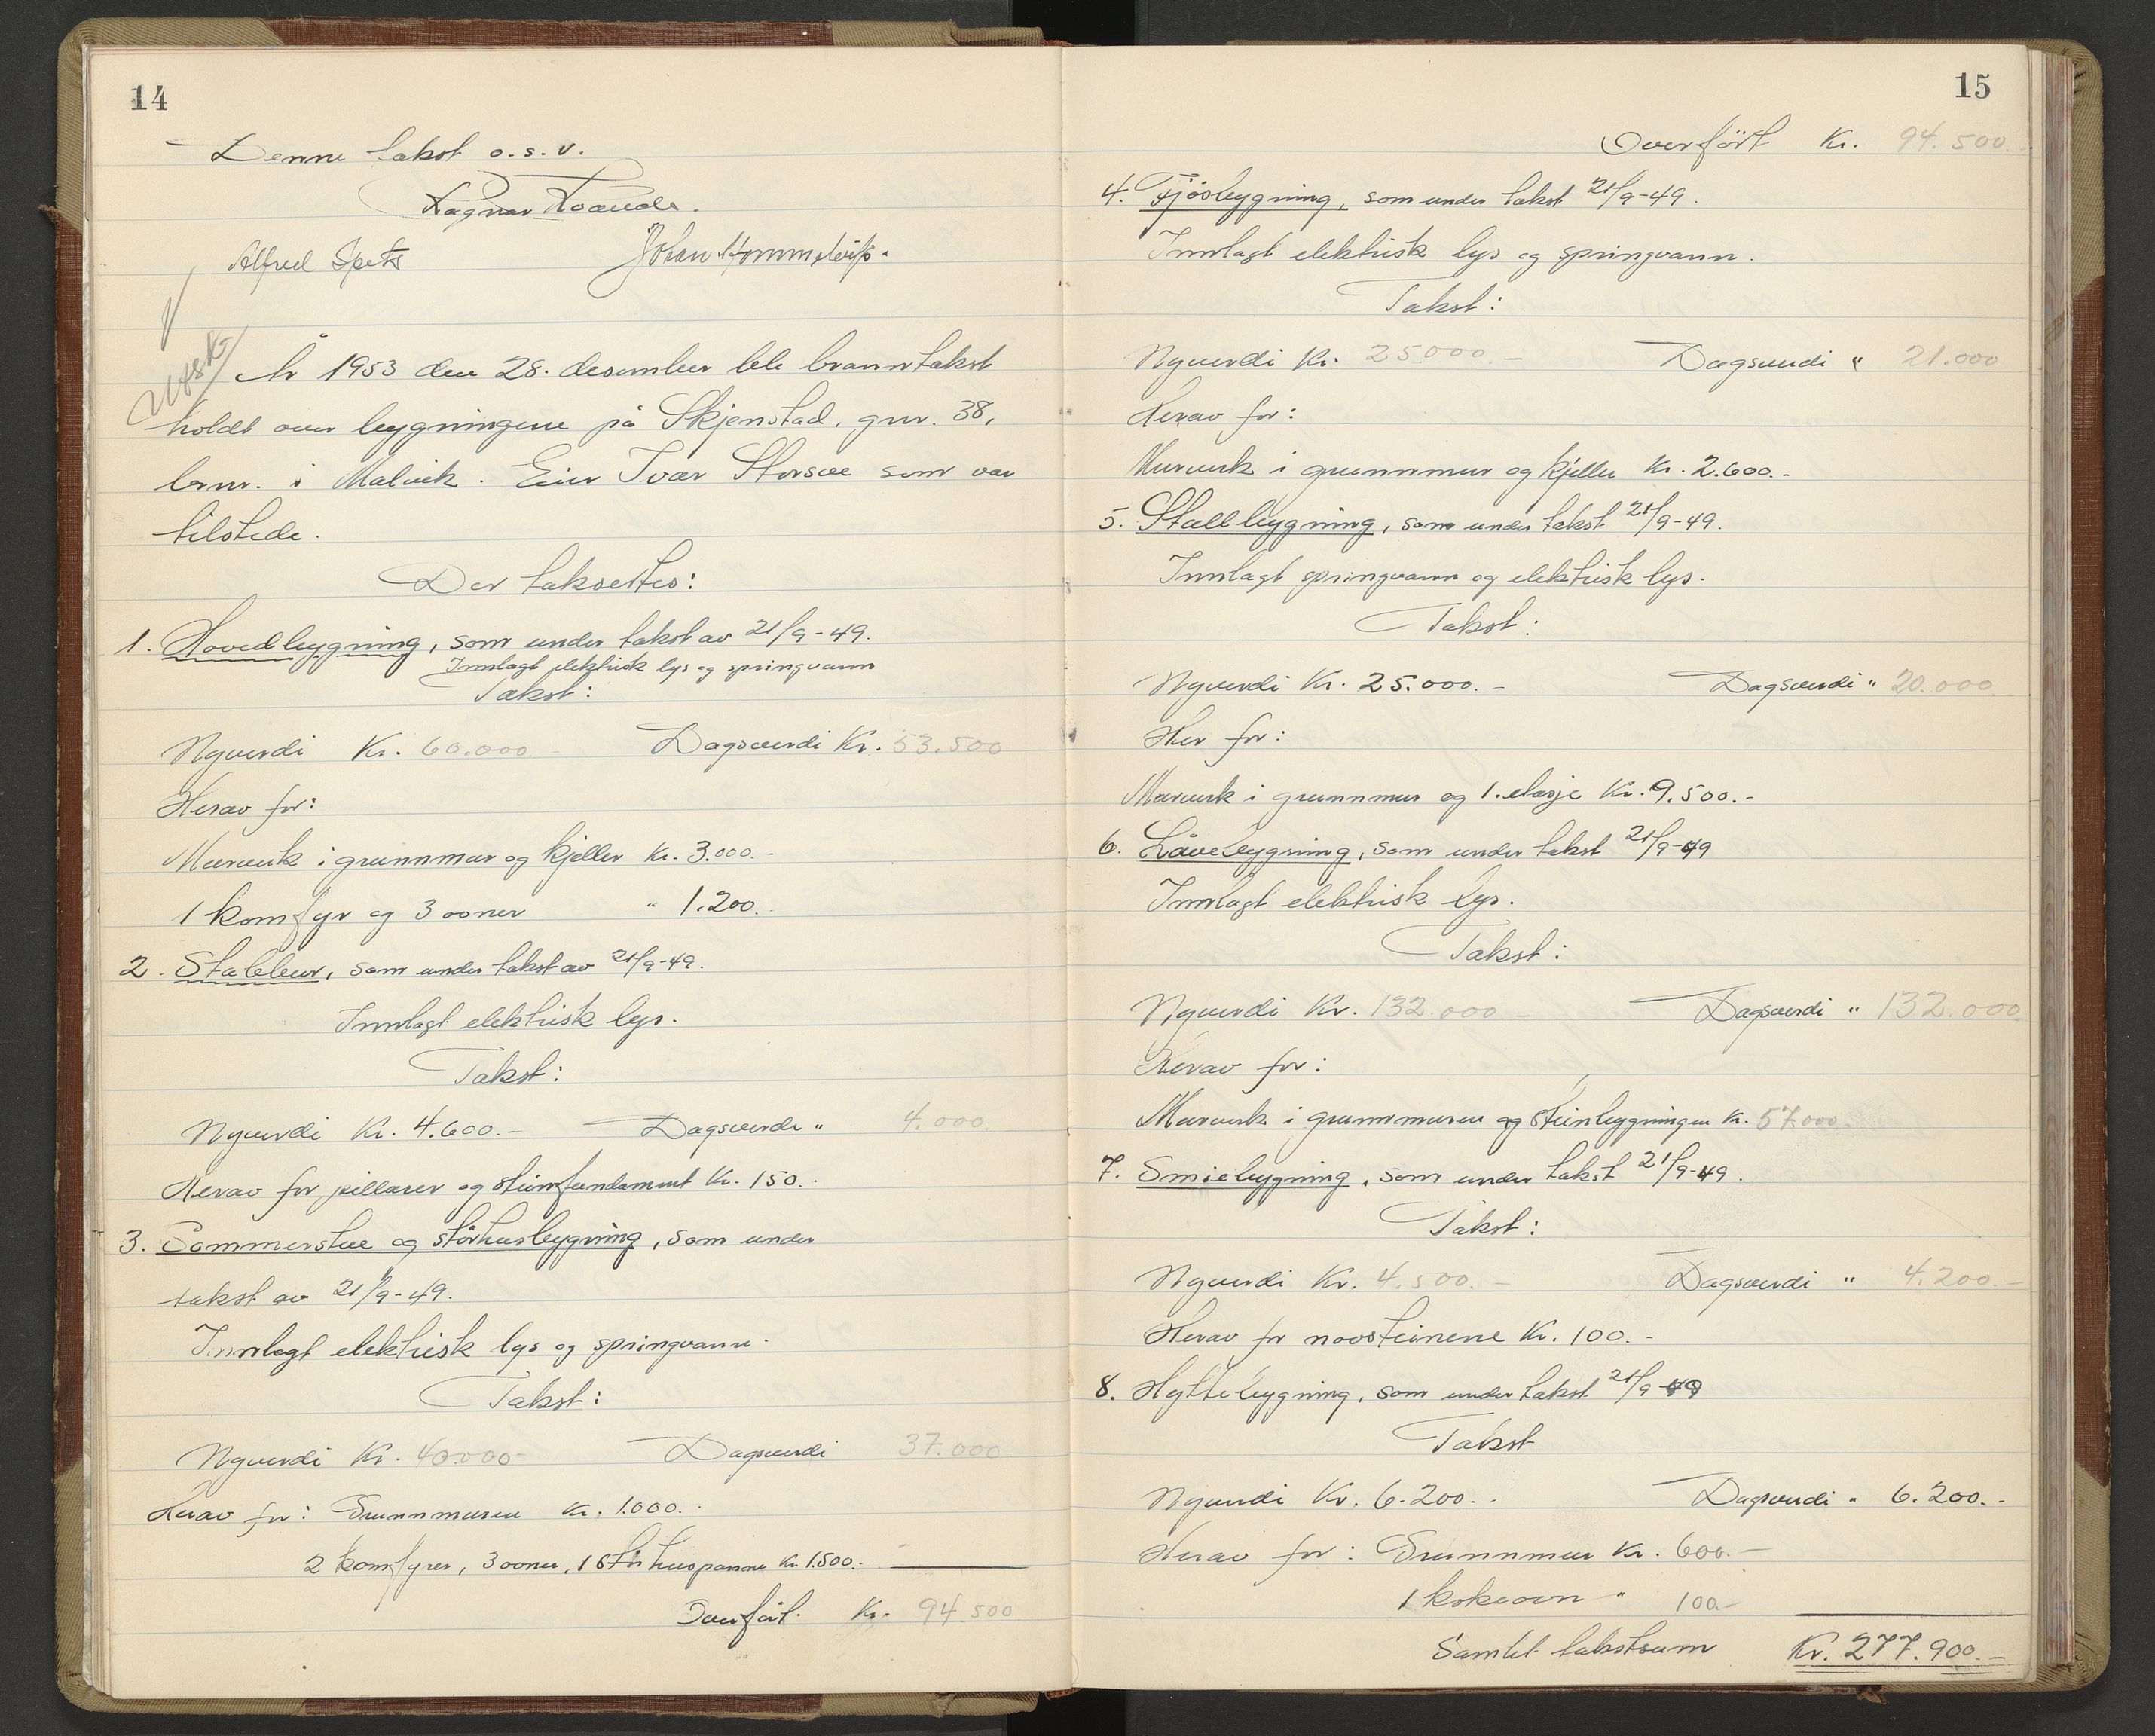 14
Denne takst o.s.v.
Ragnar
Alfred Spets Johan
Utskr.
År 1953 den 28. desember ble branntakst
holdt over bygningene på Skjenstad, gnr. 38,
bnr. i Malvik. Eier Ivar Storsve som var
tilstede.
Der taksertes:
1. Hovedbygning, som under takst av 21/9-49.
Innlagt elektrisk lys og springvann
Takst:
Nyverdi Kr. 60.000 - Dagsverdi Kr. 53.500
Herav for:
Murverk i grunnmur og kjeller Kr. 3.000.-
1 komfyr og 3 ovner " 1.200.
2. Stabbur, som under takst av 21/9-49.
Innlagt elektrisk lys.
Takst:
Nyverdi Kr. 4.600.- Dagsverdi " 4.000.
Herav for pillarer og steinfundament Kr. 150.-
3. Sommerstue og störhusbygning, som under
takst av 21/9-49.
Innlagt elektrisk lys og springvann.
Takst:
Nyverdi Kr. 40.000- Dagsverdi 37.000
Herav for: Grunnmuren Kr. 1.000.-
2 komfyrer, 3 ovner, 1 störhuspanne Kr. 1.500.-
Overfört. Kr. 94.500
15
Overfört Kr. 94.500.-
4. Fjösbygning, som under takst 21/9-49.
Innlagt elektrisk lys og springvann.
Takst:
Nyverdi Kr. 25.000.- Dagsverdi " 21.000
Herav for:
Murverk i grunnmur og kjeller Kr. 2.600.-
5. Stallbygning, som under takst 21/9-49.
Innlagt springvann og elektrisk lys.
Takst:
Nyverdi Kr. 25.000.- Dagsverdi " 20.000
Her for:
Murverk i grunnmur og 1. etasje Kr. 9.500.-
6. Låvebygning, som under takst 21/9-49
Innlagt elektrisk lys.
Takst:
Nyverdi Kr. 132.000 - Dagsverdi " 132.000
Herav for:
Murverk i grunnmuren og steinbygningen Kr. 57.000.-
7. Smiebygning, som under takst 21/9-49.
Takst:
Nyverdi Kr. 4.500.- Dagsverdi " 4.200.-
Herav for novsteinene Kr. 100.-
8. Hyttebygning, som under takst 21/9-49
Takst
Nyverdi Kr. 6.200.- Dagsverdi " 6.200.-
Herav for: Grunnmur Kr. 600.-
1 kokeovn " 100.-
Samlet takstsum Kr. 277.900.-